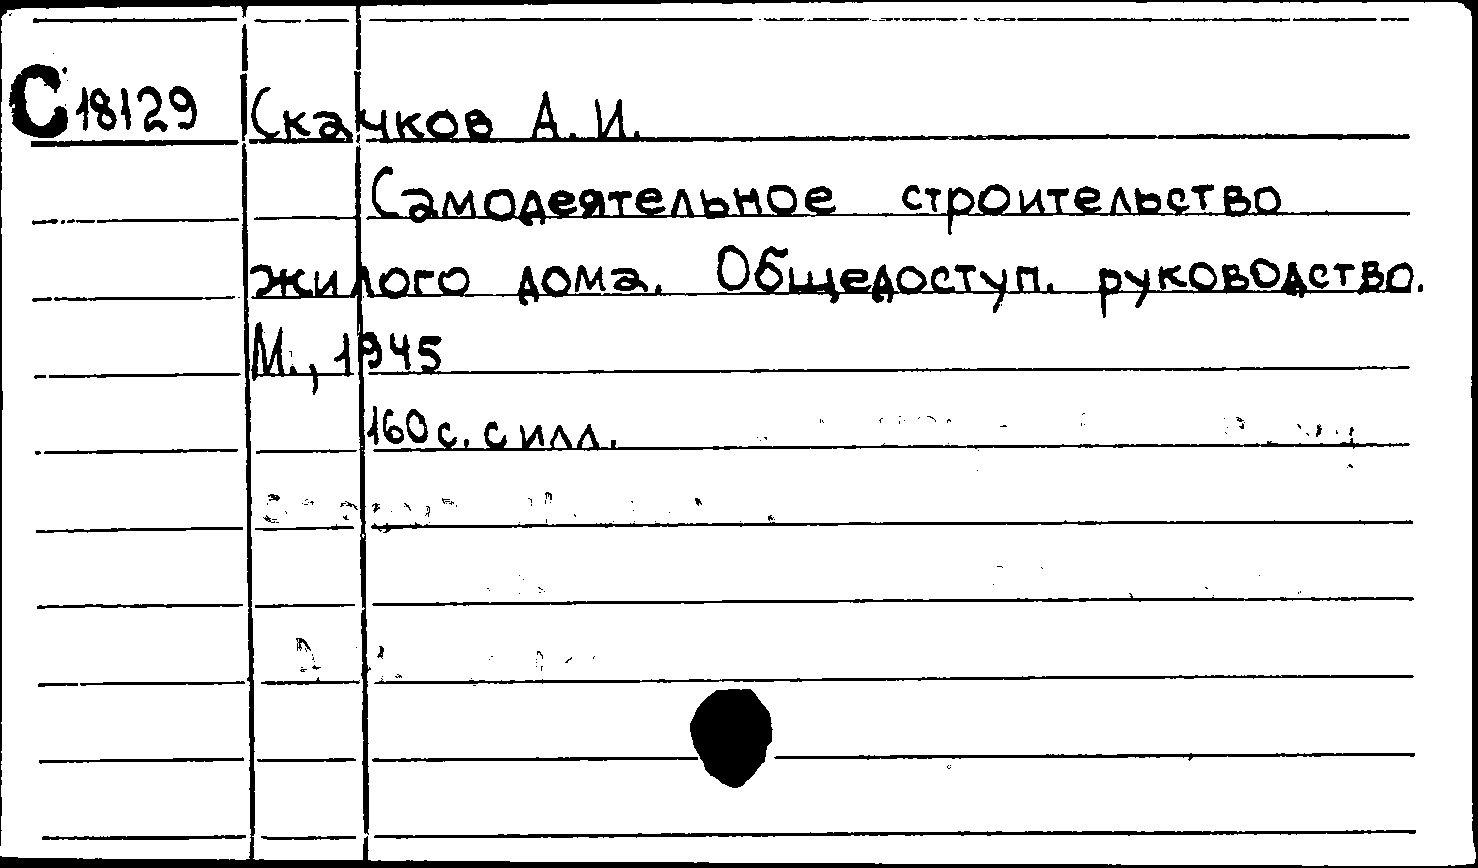 С18129 Скачков А. И.
Самодеятельное строительство
жилого дома. Общедоступ. руководство.
М., 1945
160 с. с илл.